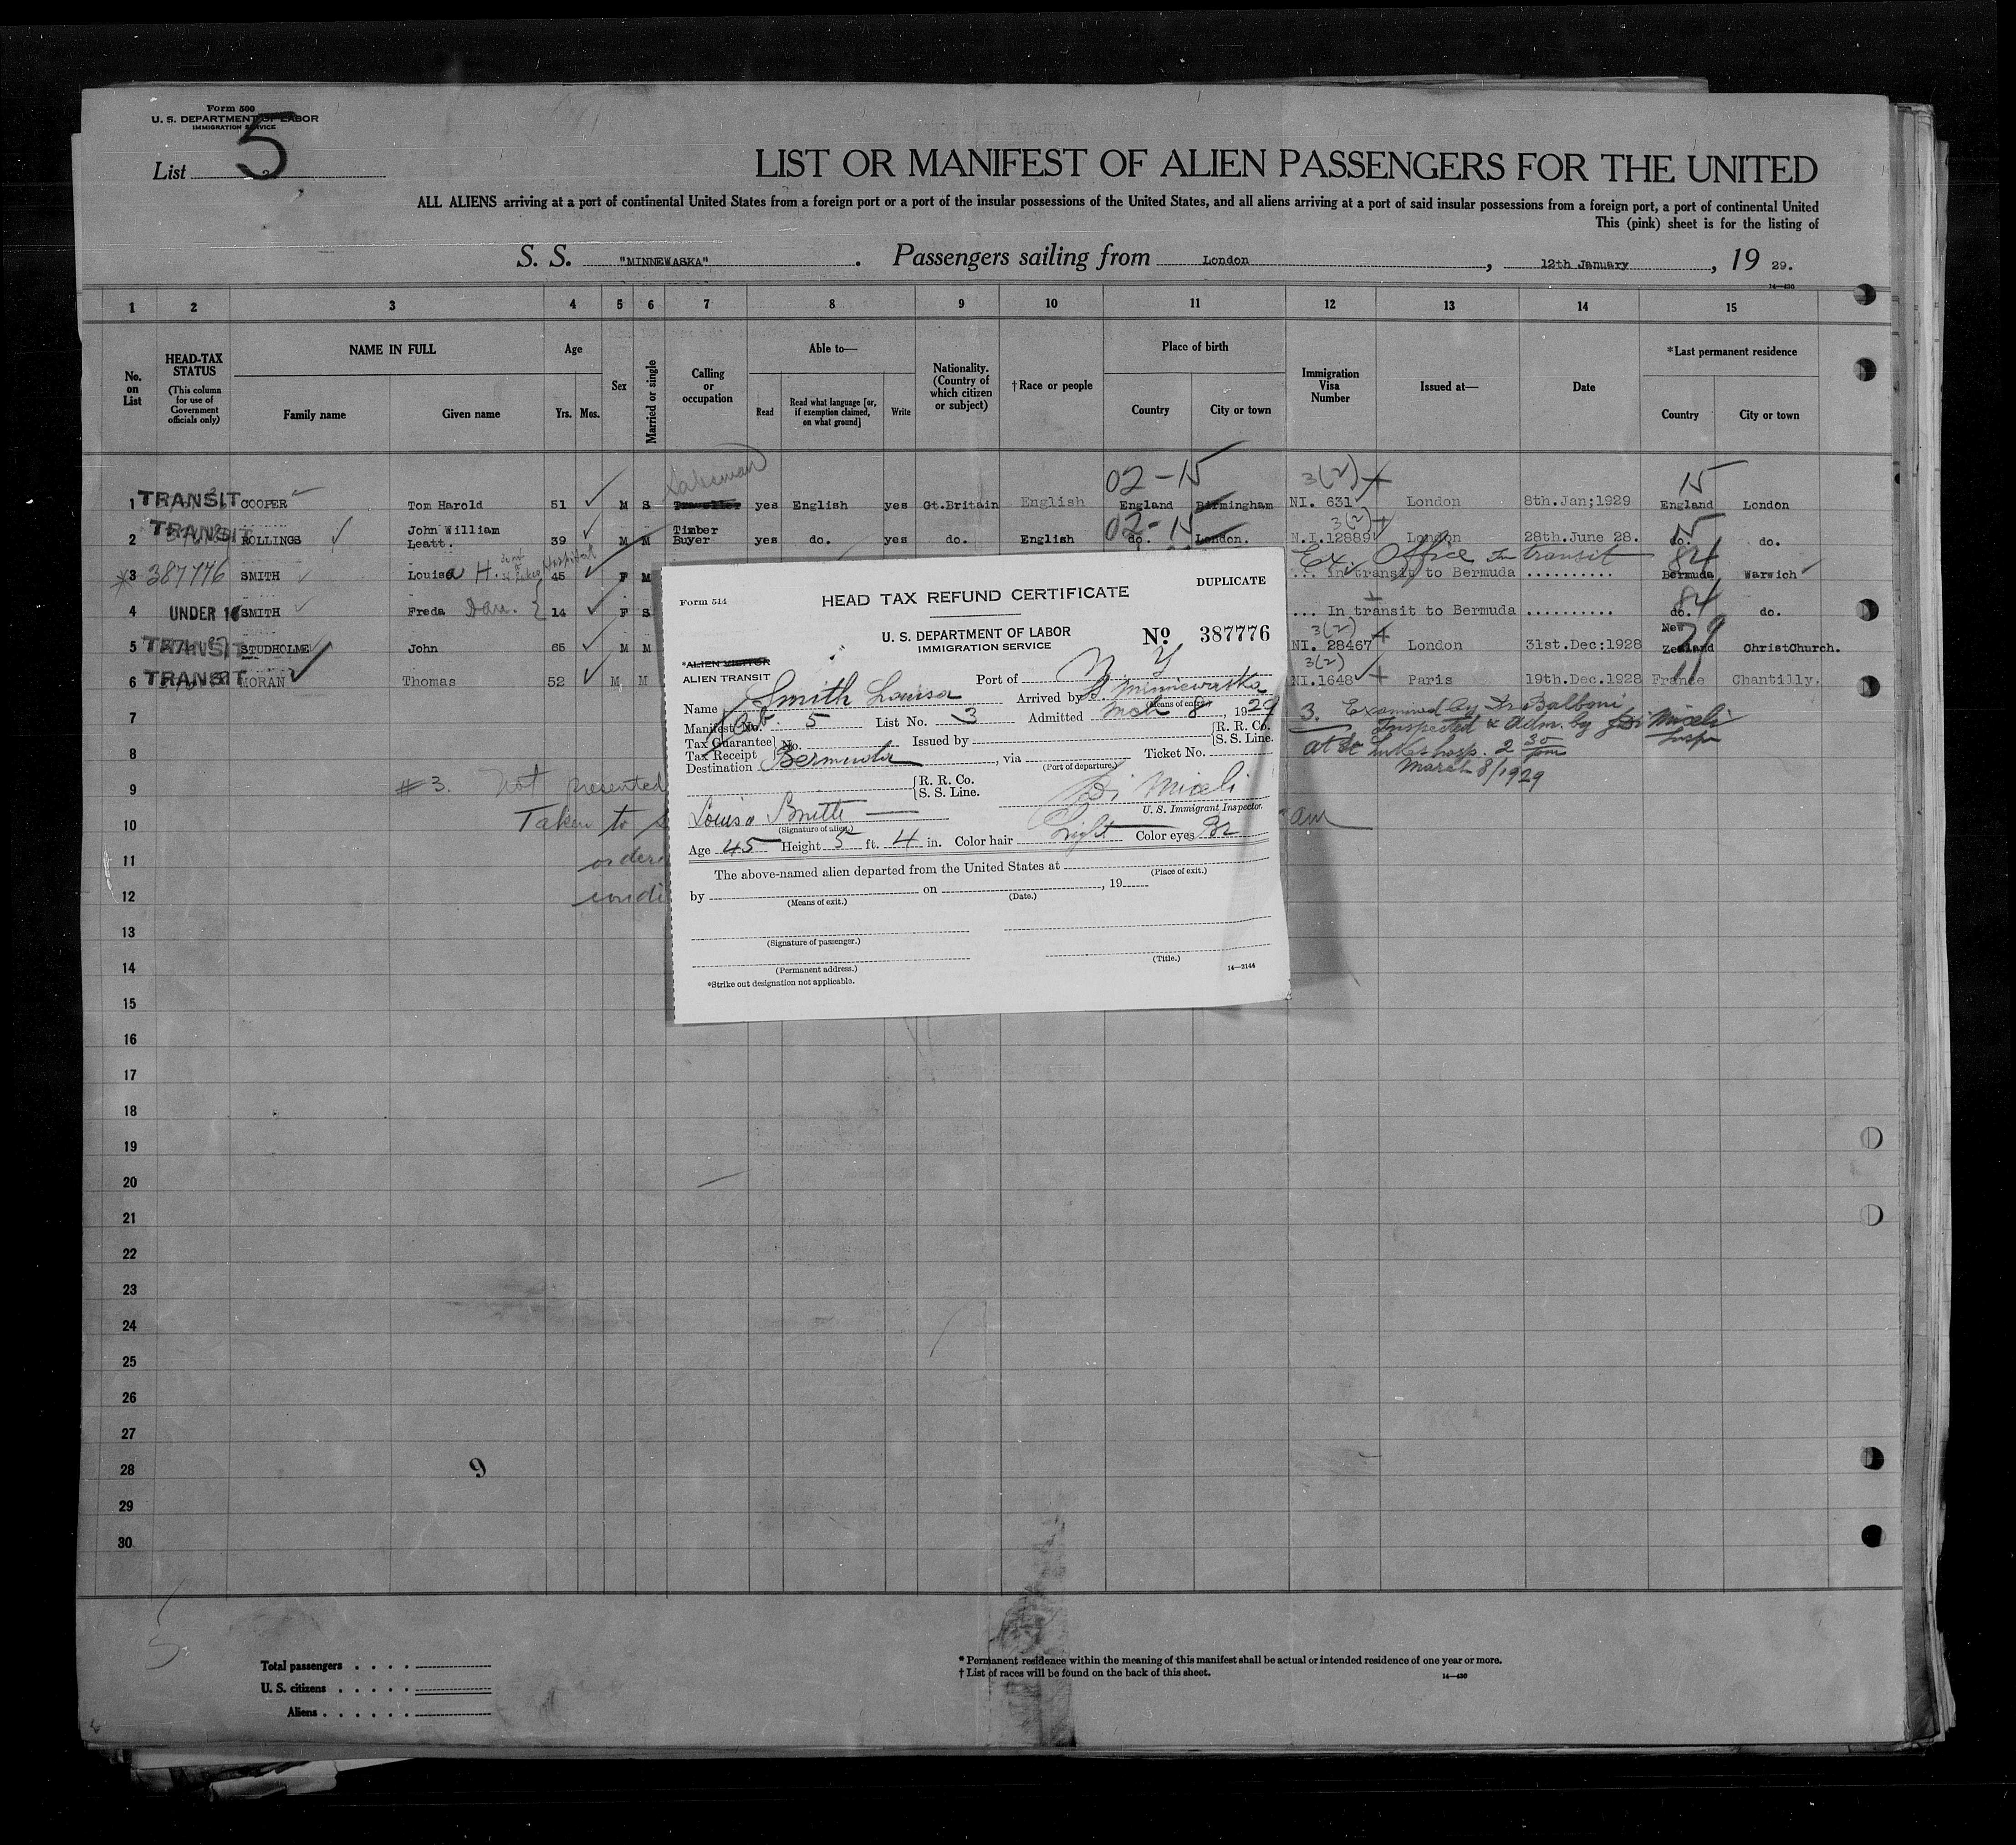 Form 500
U. S. DEPARTMENT OF LABOR
IMMIGRATION SERVICE
List 5
LIST OR MANIFEST OF ALIEN PASSENGERS FOR THE UNITED
ALL ALIENS arriving at a port of continental United States from a foreign port or a port of the insular possessions of the United States, and all aliens arriving at a port of said insular possessions from a foreign port, a port of continental United
This (pink) sheet is for the listing of
S. S. "MINNEWASKA". Passengers sailing from London, 12th January, 19 29.
14—430
1 2 3 4 5 6 7 8 9 10 11 12 13 14 15
No. on List
HEAD-TAX STATUS (This column for use of Government officials only)
NAME IN FULL
Family name Given name
Age
Yrs. Mos.
Sex
Married or single
Calling or occupation
Able to—
Read Read what language [or, if exemption claimed, on what ground] Write
Nationality. (Country of which citizen or subject)
†Race or people
Place of birth
Country City or town
Immigration Visa Number
Issued at—
Date
*Last permanent residence
Country City or town
Salesman 02-15 3(2) 15
1 TRANSIT COOPER Tom Harold 51 M S yes English yes Gt.Britain English England Birmingham NI. 631 London 8th.Jan;1929 England London
02-15 3(2) 15
2 TRANSIT ROLLINGS John William Leatt. 39 M M Timber Buyer yes do. yes do. English do. London. N.I.12889 London 28th.June 28. do. do.
Ex. Office In transit 84
3 387776 SMITH Louisa H. 45 F M ... In transit to Bermuda .......... Bermuda Warwich
84
4 UNDER 16 SMITH Freda Dau. 14 F S ... In transit to Bermuda .......... do. do.
3(2) 79
5 TRANSIT STUDHOLME John 65 M M NI. 28467 London 31st.Dec:1928 New Zealand ChristChurch.
3(2) 11
6 TRANSIT MORAN Thomas 52 M M NI.1648 Paris 19th.Dec.1928 France Chantilly.
7
8
9
10
11
12
13
14
15
16
17
18
19
20
21
22
23
24
25
26
27
28
29
30
3. Examined by Dr Balboni
Inspected & adm. by Di Miceli
Insp
at St Lukes hosp. 2 30 pm
March 8/1929
#3. Not presented
Taken to
am
9
DUPLICATE
Form 514
HEAD TAX REFUND CERTIFICATE
U. S. DEPARTMENT OF LABOR
IMMIGRATION SERVICE
No 387776
*ALIEN VISITOR
ALIEN TRANSIT
Port of N Y
Name Smith Louisa Arrived by SS Minnewaska
(Means of entry)
Manifest No. 5 List No. 3 Admitted Mch 8, 1929
Tax Guarantee
Tax Receipt } No. Issued by {R. R. Co.
S. S. Line.
Destination Bermuda, via (Port of departure.) Ticket No.
{R. R. Co.
S. S. Line.
Di Miceli
U. S. Immigrant Inspector.
Louisa
(Signature of alien.)
Age 45 Height 5 ft. 4 in. Color hair Light Color eyes Br
The above-named alien departed from the United States at
(Place of exit.)
by on , 19
(Means of exit.) (Date.)
(Signature of passenger.)
(Permanent address.) (Title.)
14—2144
*Strike out designation not applicable.
Total passengers
U. S. citizens
Aliens
* Permanent residence within the meaning of this manifest shall be actual or intended residence of one year or more.
† List of races will be found on the back of this sheet.
14—430